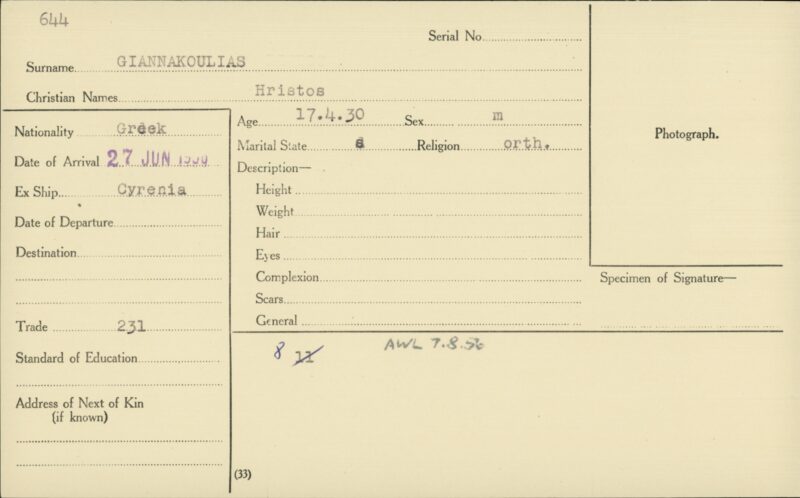 644
Serial No.
Surname GIANNAKOULIAS
Christian Names Hristos
Nationality Greek
Date of Arrival 27 JUN
Ex Ship Cyrenia
Date of Departure
Destination
Trade 231
Standard of Education
Address of Next of Kin
(if known)
Age 17.4.30 Sex m
Marital State Religion orth.
Description—
Height
Weight
Hair
Eyes
Complexion
Scars
General
8 11 AWL 7.8.56
(33)
Photograph.
Specimen of Signature—